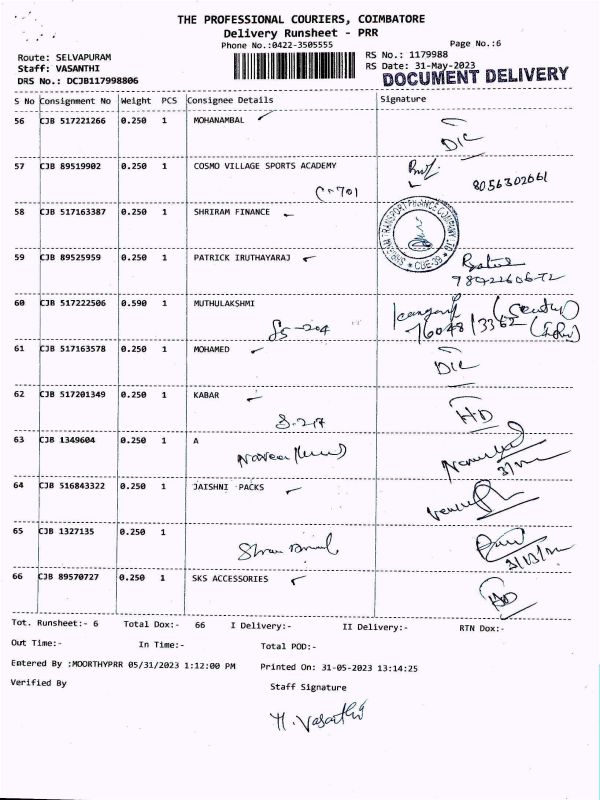 THE PROFESSIONAL COURIERS, COIMBATORE
Delivery Runsheet - PRR
Phone No.:0422-3505555
Page No.:6
Route: SELVAPURAM
RS No.: 1179988
Staff: VASANTHI
RS Date: 31-May-2023
DRS No.: DCJB117998806
DOCUMENT DELIVERY
S No Consignment No Weight PCS Consignee Details Signature
56 CJB 517221266 0.250 1 MOHANAMBAL
57 CJB 89519902 0.250 1 COSMO VILLAGE SPORTS ACADEMY
8056302661
58 CJB 517163387 0.250 1 SHRIRAM FINANCE
59 CJB 89525959 0.250 1 PATRICK IRUTHAYARAJ
60 CJB 517222506 0.590 1 MUTHULAKSHMI
61 CJB 517163578 0.250 1 MOHAMED
62 CJB 517201349 0.250 1 KABAR
HD
63 CJB 1349604 0.250 1 A
64 CJB 516843322 0.250 1 JAISHNI PACKS
65 CJB 1327135 0.250 1
66 CJB 89570727 0.250 1 SKS ACCESSORIES
Tot. Runsheet:- 6 Total Dox:- 66 I Delivery:- II Delivery:- RTN Dox:-
Out Time:- In Time:- Total POD:-
Entered By :MOORTHYPRR 05/31/2023 1:12:00 PM Printed On: 31-05-2023 13:14:25
Verified By Staff Signature
M. Vasanthi